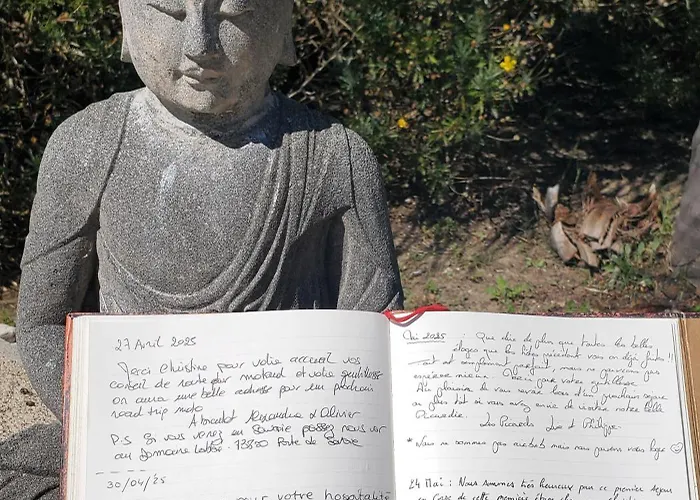 27 Avril 2025
Merci Christine pour votre accueil vos
conseil de route pour motard et votre gentillesse
on aura une belle adresse pour un prochain
road trip moto
A bientot Alexandra & Olivier
P.S Si vous venez en Savoie passez nous voir
au Domaine 73800 Porte de Savoie
30/04/25
pour votre hospitalité
Mai 2025 : Que dire de plus que toutes les belles
éloges que les hôtes précédent vous on déjà faites !!
Tout est simplement parfait, mais ne pouvons pas
mieux. Merci pour votre gentillesse.
Au plaisir de vous revoir lors d'un prochain séjour
ou plus tôt si vous avez envie de visiter notre belle
Picardie.
Les Picards Luc & Philippe.
* Nous ne sommes pas mais nous savons vous loge
24 Mai : Nous sommes très heureux pour ce premier séjour
en Corse de cette première étape